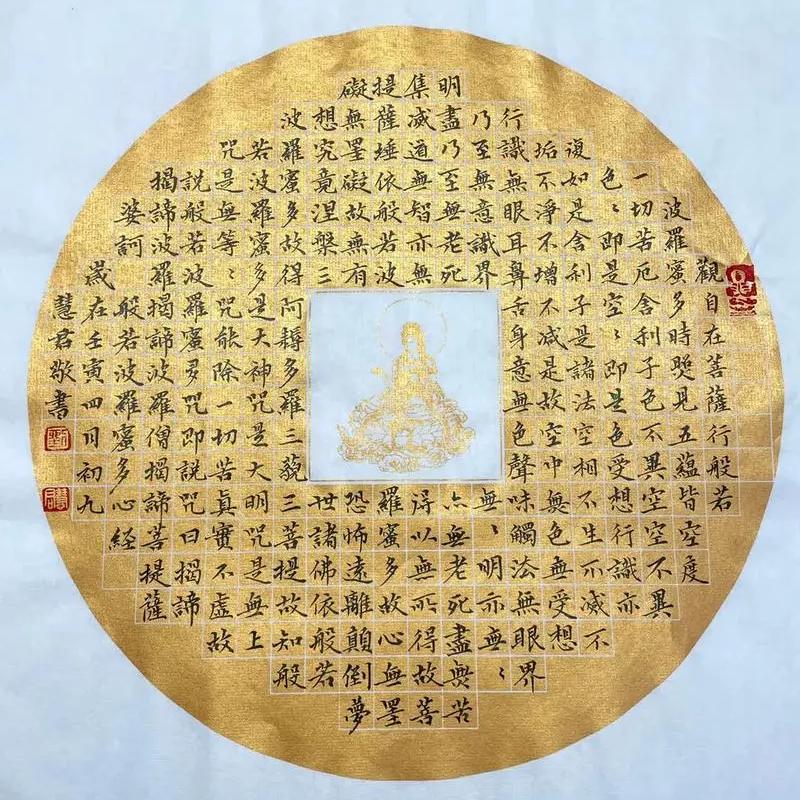 觀自在菩薩行般若
波羅蜜多時照見五蘊皆空度
一切苦厄舍利子色不異空空不異
色〻即是空〻即是色受想行識亦
復如是舍利子是諸法空相不生不滅不
垢不淨不增不減是故空中無色無受想
行識無眼耳鼻舌身意無色聲味觸法無眼界
乃至無意識界無〻明亦無〻
明盡乃至無老死亦無老死盡無苦
集滅道無智亦無得以無所得故菩
提薩埵依般若波羅蜜多故心無罣
礙無罣礙故無有恐怖遠離顛倒夢
想究竟涅槃三世諸佛依般若
波羅蜜多故得阿耨多羅三藐三菩提故知般
若波羅蜜多是大神咒是大明咒是無上
咒是無等〻咒能除一切苦真實不虛故
說般若波羅蜜多咒即說咒曰揭諦
揭諦波羅揭諦波羅僧揭諦菩提薩
婆訶般若波羅蜜多心經
歲在壬寅四月初九
慧君敬書